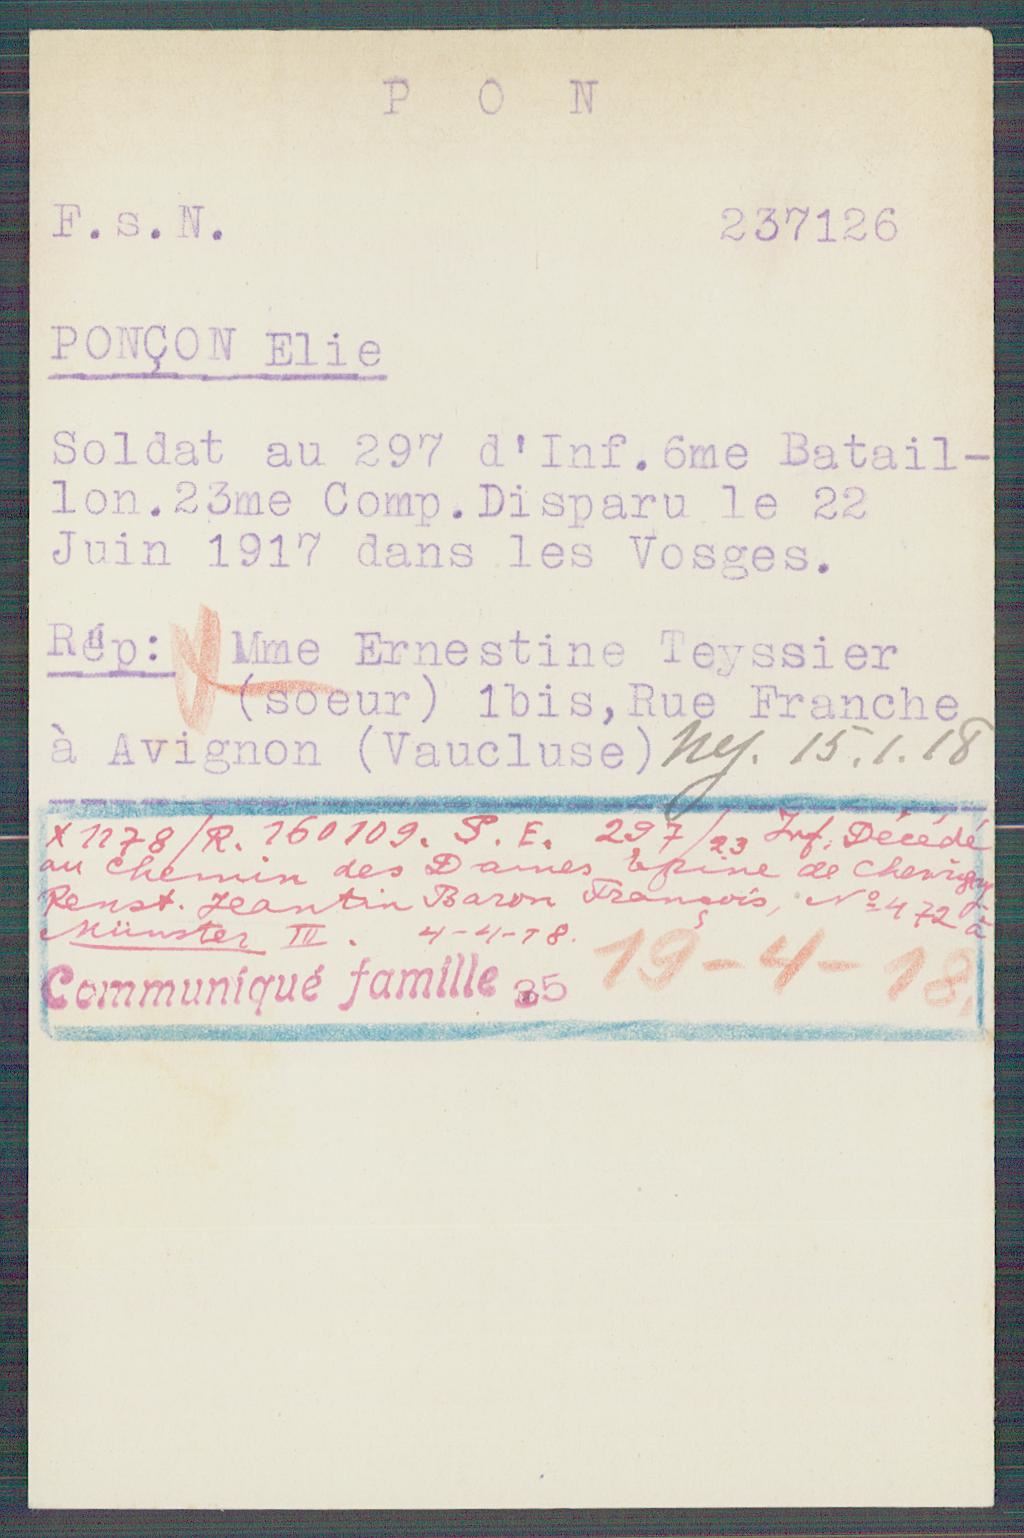 P O N
F.s.N. 237126
PONÇON Elie
Soldat au 297 d'Inf.6me Batail-
lon.23me Comp.Disparu le 22
Juin 1917 dans les Vosges.
Rép: Mme Ernestine Teyssier
(soeur) 1bis,Rue Franche
à Avignon (Vaucluse) Neg. 15.1.18
X 1178/R. 160109. P. E. 297/23 Inf. Décédé
au Chemin des Dames Epine de Chevrigny
Renst. Jeantin Baron François, Nº 472 à
Münster III. 4-4-18.
Communiqué famille 35 19-4-18.